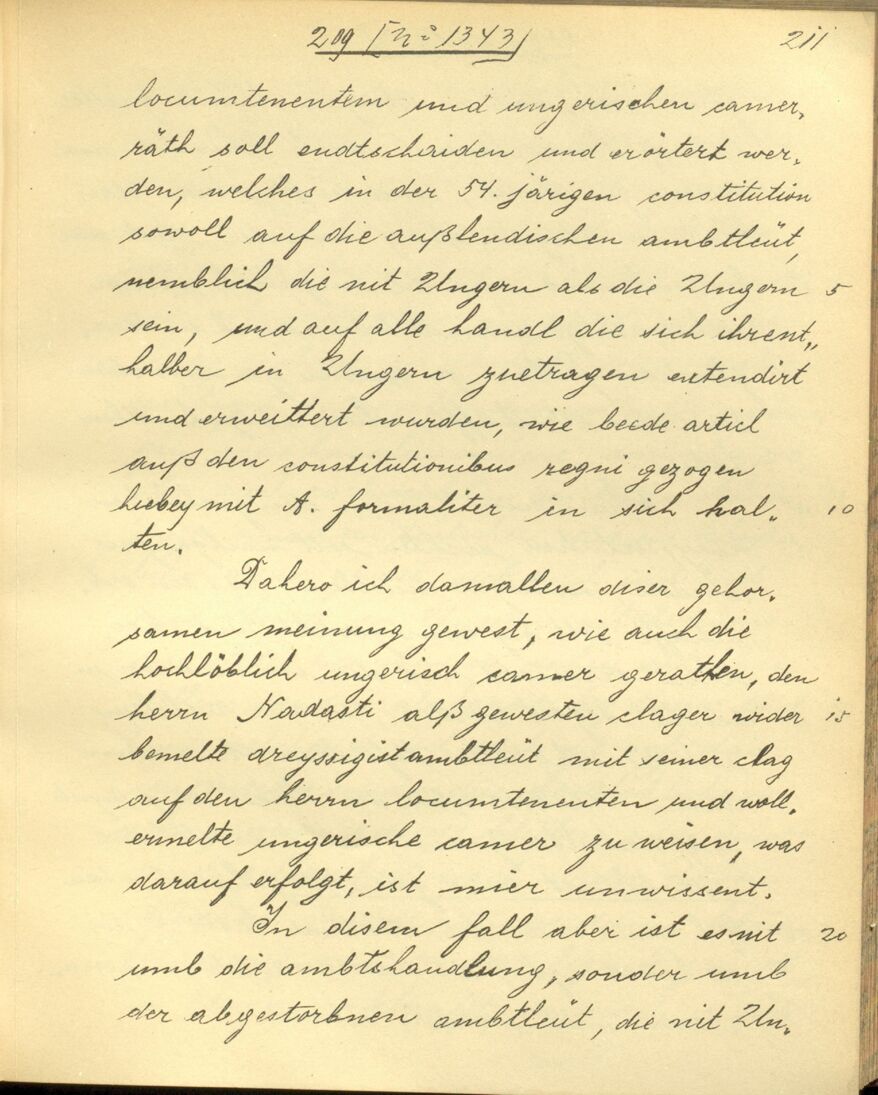 209 [No 1343] 211
locumtenentem und ungerischen camer,
räth soll endtschaiden und erörtert wer,
den, welches in der 54. järigen constitution
sowoll auf die außlendischen ambtleüt,
nemblich die nit Ungern als die Ungern 5
sein, und auf alle handl die sich ihrent„
halber in Ungern zuetragen extendirt
und erweittert wurden, wie beede articl
auß den constitutionibus regni gezogen
hiebey mit A. formaliter in sich hal„ 10
ten.
Dahero ich damallen diser gehor,
samen meinung gewest, wie auch die
hochlöblich ungerisch camer gerathen, den
herrn Nadasti alß gewesten clager wider 15
bemelte dreyssigistambtleüt mit seiner clag
auf den herrn locumtenenten und woll,
ermelte ungerische camer zu weisen, was
darauf erfolgt, ist mier unwissent.
In disem fall aber ist es nit 20
umb die ambtshandlung, sonder umb
der abgestorbnen ambtleüt, die nit Un,